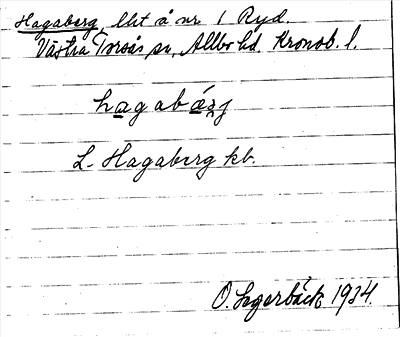 Hagaberg, lht å nr 1 Ryd.
Västra Torsås sn, Allbo hd. Kronob. l.
hagabárj
L. Hagaberg kb.
O. Lagerbäck 1934.